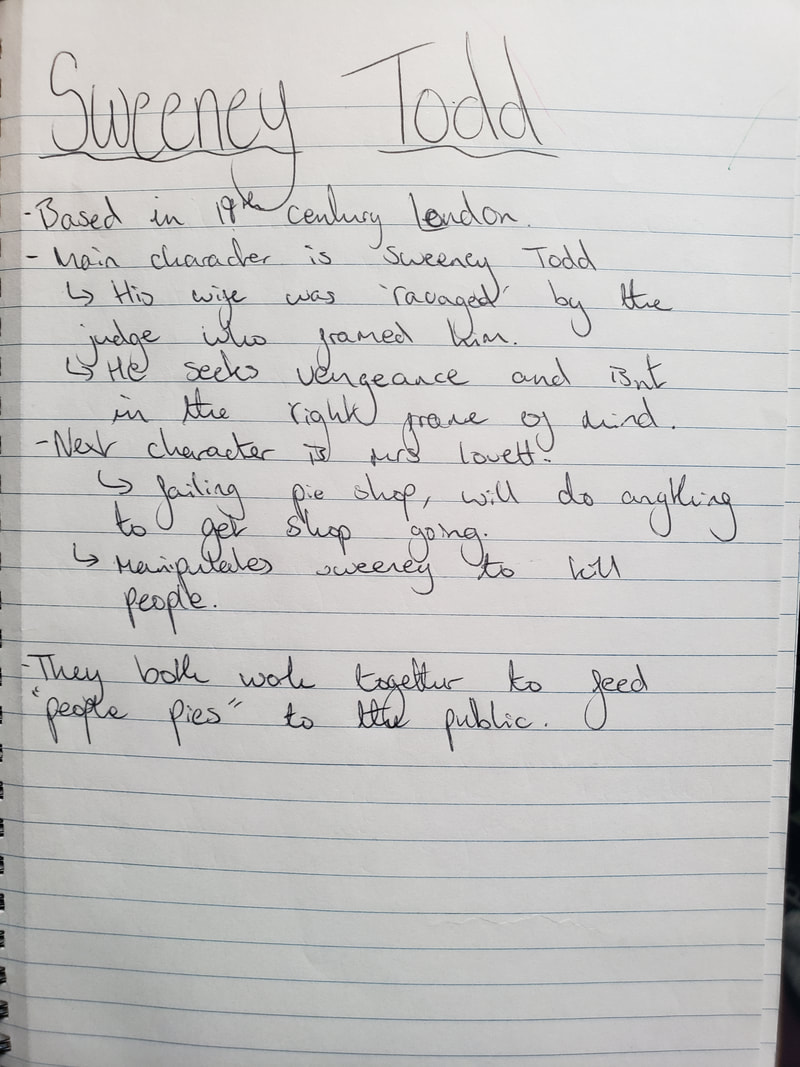 Sweeney Todd
- Based in 19th century London.
- Main character is Sweeney Todd
↳ His wife was 'ravaged' by the
judge who framed him.
↳ He seeks vengeance and isnt
in the right frame of mind.
- Next character is Mrs Lovett.
↳ failing pie shop, will do anything
to get shop going.
↳ Manipulates sweeney to kill
people.
- They both work together to feed
"people pies" to the public.